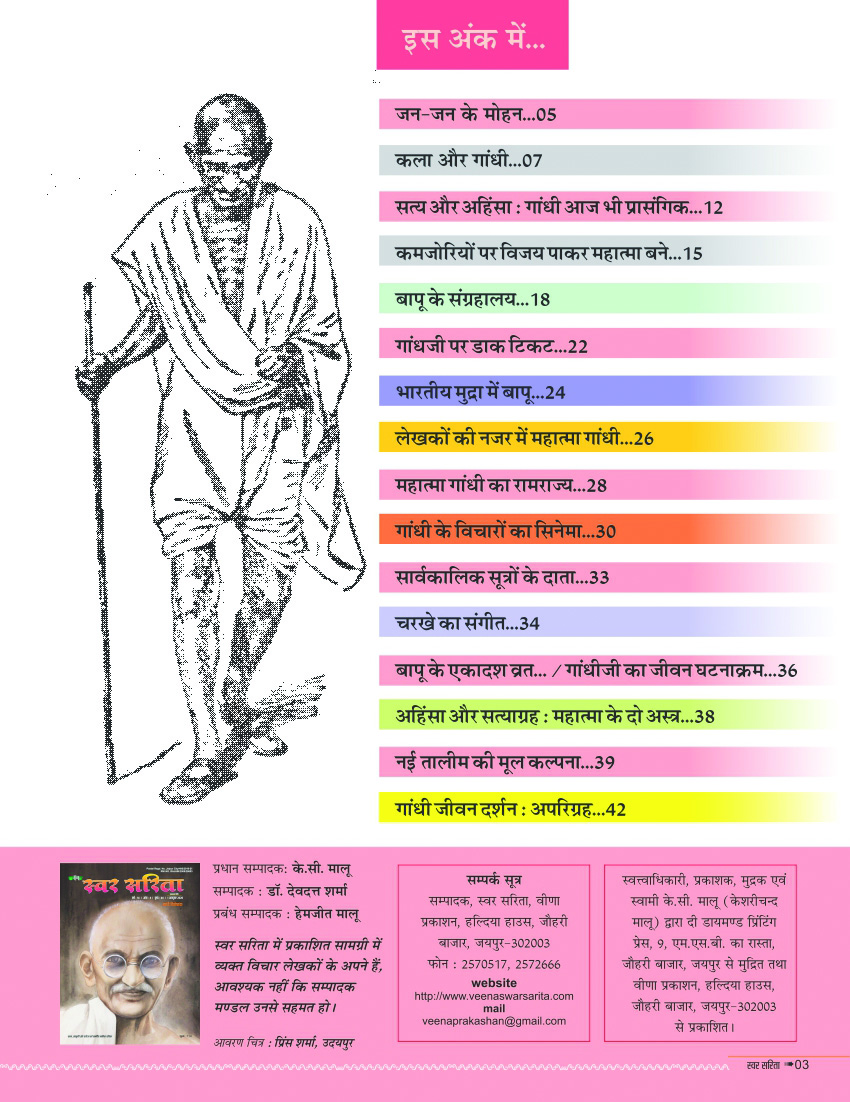 इस अंक में...
जन-जन के मोहन...05
कला और गांधी...07
सत्य और अहिंसा : गांधी आज भी प्रासंगिक...12
कमजोरियों पर विजय पाकर महात्मा बने...15
बापू के संग्रहालय...18
गांधजी पर डाक टिकट...22
भारतीय मुद्रा में बापू...24
लेखकों की नजर में महात्मा गांधी...26
महात्मा गांधी का रामराज्य...28
गांधी के विचारों का सिनेमा...30
सार्वकालिक सूत्रों के दाता...33
चरखे का संगीत...34
बापू के एकादश व्रत... / गांधीजी का जीवन घटनाक्रम...36
अहिंसा और सत्याग्रह : महात्मा के दो अस्त्र...38
नई तालीम की मूल कल्पना...39
गांधी जीवन दर्शन : अपरिग्रह...42
स्वर सरिता
प्रधान सम्पादक: के.सी. मालू
सम्पादक : डॉ. देवदत्त शर्मा
प्रबंध सम्पादक : हेमजीत मालू
स्वर सरिता में प्रकाशित सामग्री में
व्यक्त विचार लेखकों के अपने हैं,
आवश्यक नहीं कि सम्पादक
मण्डल उनसे सहमत हो।
आवरण चित्र : प्रिंस शर्मा, उदयपुर
सम्पर्क सूत्र
सम्पादक, स्वर सरिता, वीणा
प्रकाशन, हल्दिया हाउस, जौहरी
बाजार, जयपुर-302003
फोन : 2570517, 2572666
website
http://www.veenaswarsarita.com
mail
veenaprakashan@gmail.com
स्वत्त्वाधिकारी, प्रकाशक, मुद्रक एवं
स्वामी के.सी. मालू (केशरीचन्द
मालू) द्वारा दी डायमण्ड प्रिंटिंग
प्रेस, 9, एम.एस.बी. का रास्ता,
जौहरी बाजार, जयपुर से मुद्रित तथा
वीणा प्रकाशन, हल्दिया हाउस,
जौहरी बाजार, जयपुर-302003
से प्रकाशित।
स्वर सरिता ➠03